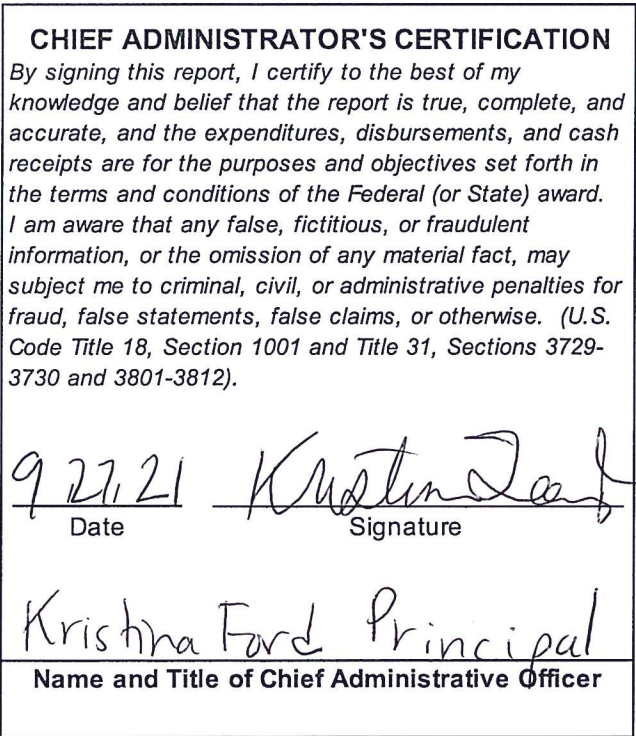 CHIEF ADMINISTRATOR'S CERTIFICATION
By signing this report, I certify to the best of my
knowledge and belief that the report is true, complete, and
accurate, and the expenditures, disbursements, and cash
receipts are for the purposes and objectives set forth in
the terms and conditions of the Federal (or State) award.
I am aware that any false, fictitious, or fraudulent
information, or the omission of any material fact, may
subject me to criminal, civil, or administrative penalties for
fraud, false statements, false claims, or otherwise. (U.S.
Code Title 18, Section 1001 and Title 31, Sections 3729-
3730 and 3801-3812).
9.27.21
Date Signature
Kristina Ford Principal
Name and Title of Chief Administrative Officer